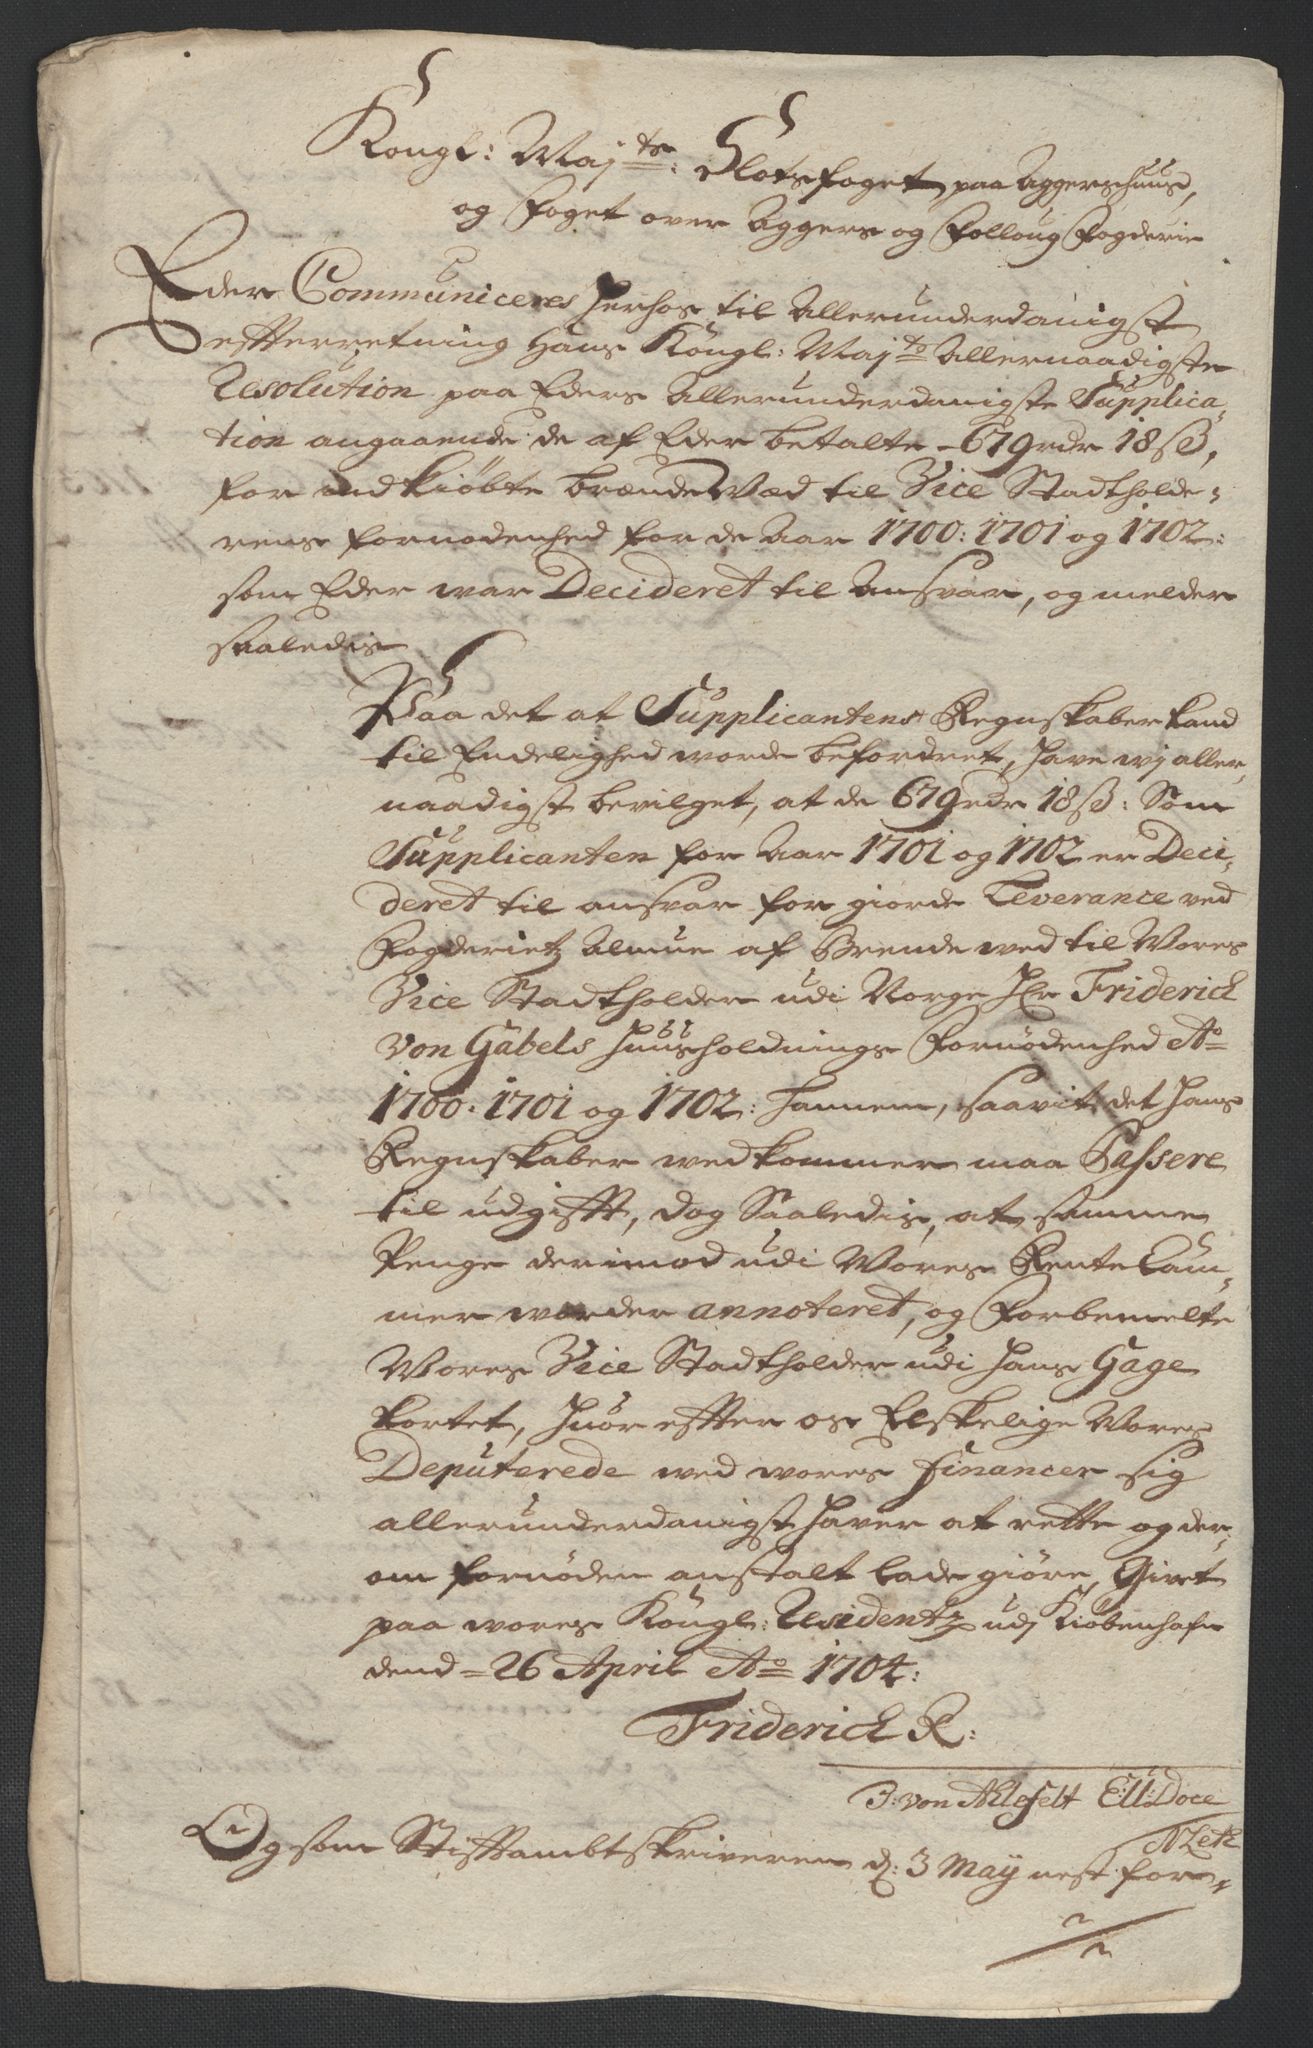 Kongl: Maj:ts Slotsfoget paa Aggerschuus,
og Foget over Aggers og Folloug Fogderie
Eder Communiceres herhos til allerunderdanigst
effterretning Hans Kongl: Maj:ts Allernaadigste
Resolution paa Eders Allerunderdanigste Supplica-
tion angaaende de af Eder betalte - 679 rdr 18 ß,
for indkiøbte brænde Wæd til Vice Stadtholde-
rens fornødenhed for de Aar 1700: 1701 og 1702:
som Eder war Decideret til Ansvar, og melder
saaledis
Paa det at Supplicantens Regnskaber kand
til Endelighed worde befordret, have wj aller-
naadigst bevilget, at de 679 rdr 18 ß: Som
Supplicanten for Aar 1701 og 1702 er Deci-
deret til ansvar for giorde Leverance ved
Fogderietz Almue af Brende wed til Wores
Vice Stadtholder udi Norge Hr Friderich
von Gabels huusholdnings Fornødenhed Ao
1700. 1701 og 1702: hannem, saavit det hans
Regnskaber wedkommer maa Passere
til udgifft, dog Saaledis, at samme
Penge derimod udi Wores Rente Cam-
mer worder annoteret, og Forbemelte
Wores Vice Stadtholder udi hans Gage
kortet, huor effter os Elskelige Wores
Deputerede wed wores Financer sig
allerunderdanigst haver at rette og der-
om fornøden anstalt lade giöre, Givet
paa wores Kongl: Residentz udj Kiøbenhafn
dend - 26 April Ao 1704:
Friderich R:
B: von Ahlefelt E: U: Dose
A Letz
Og som Stifftambtskriveren d: 3 May nest for-